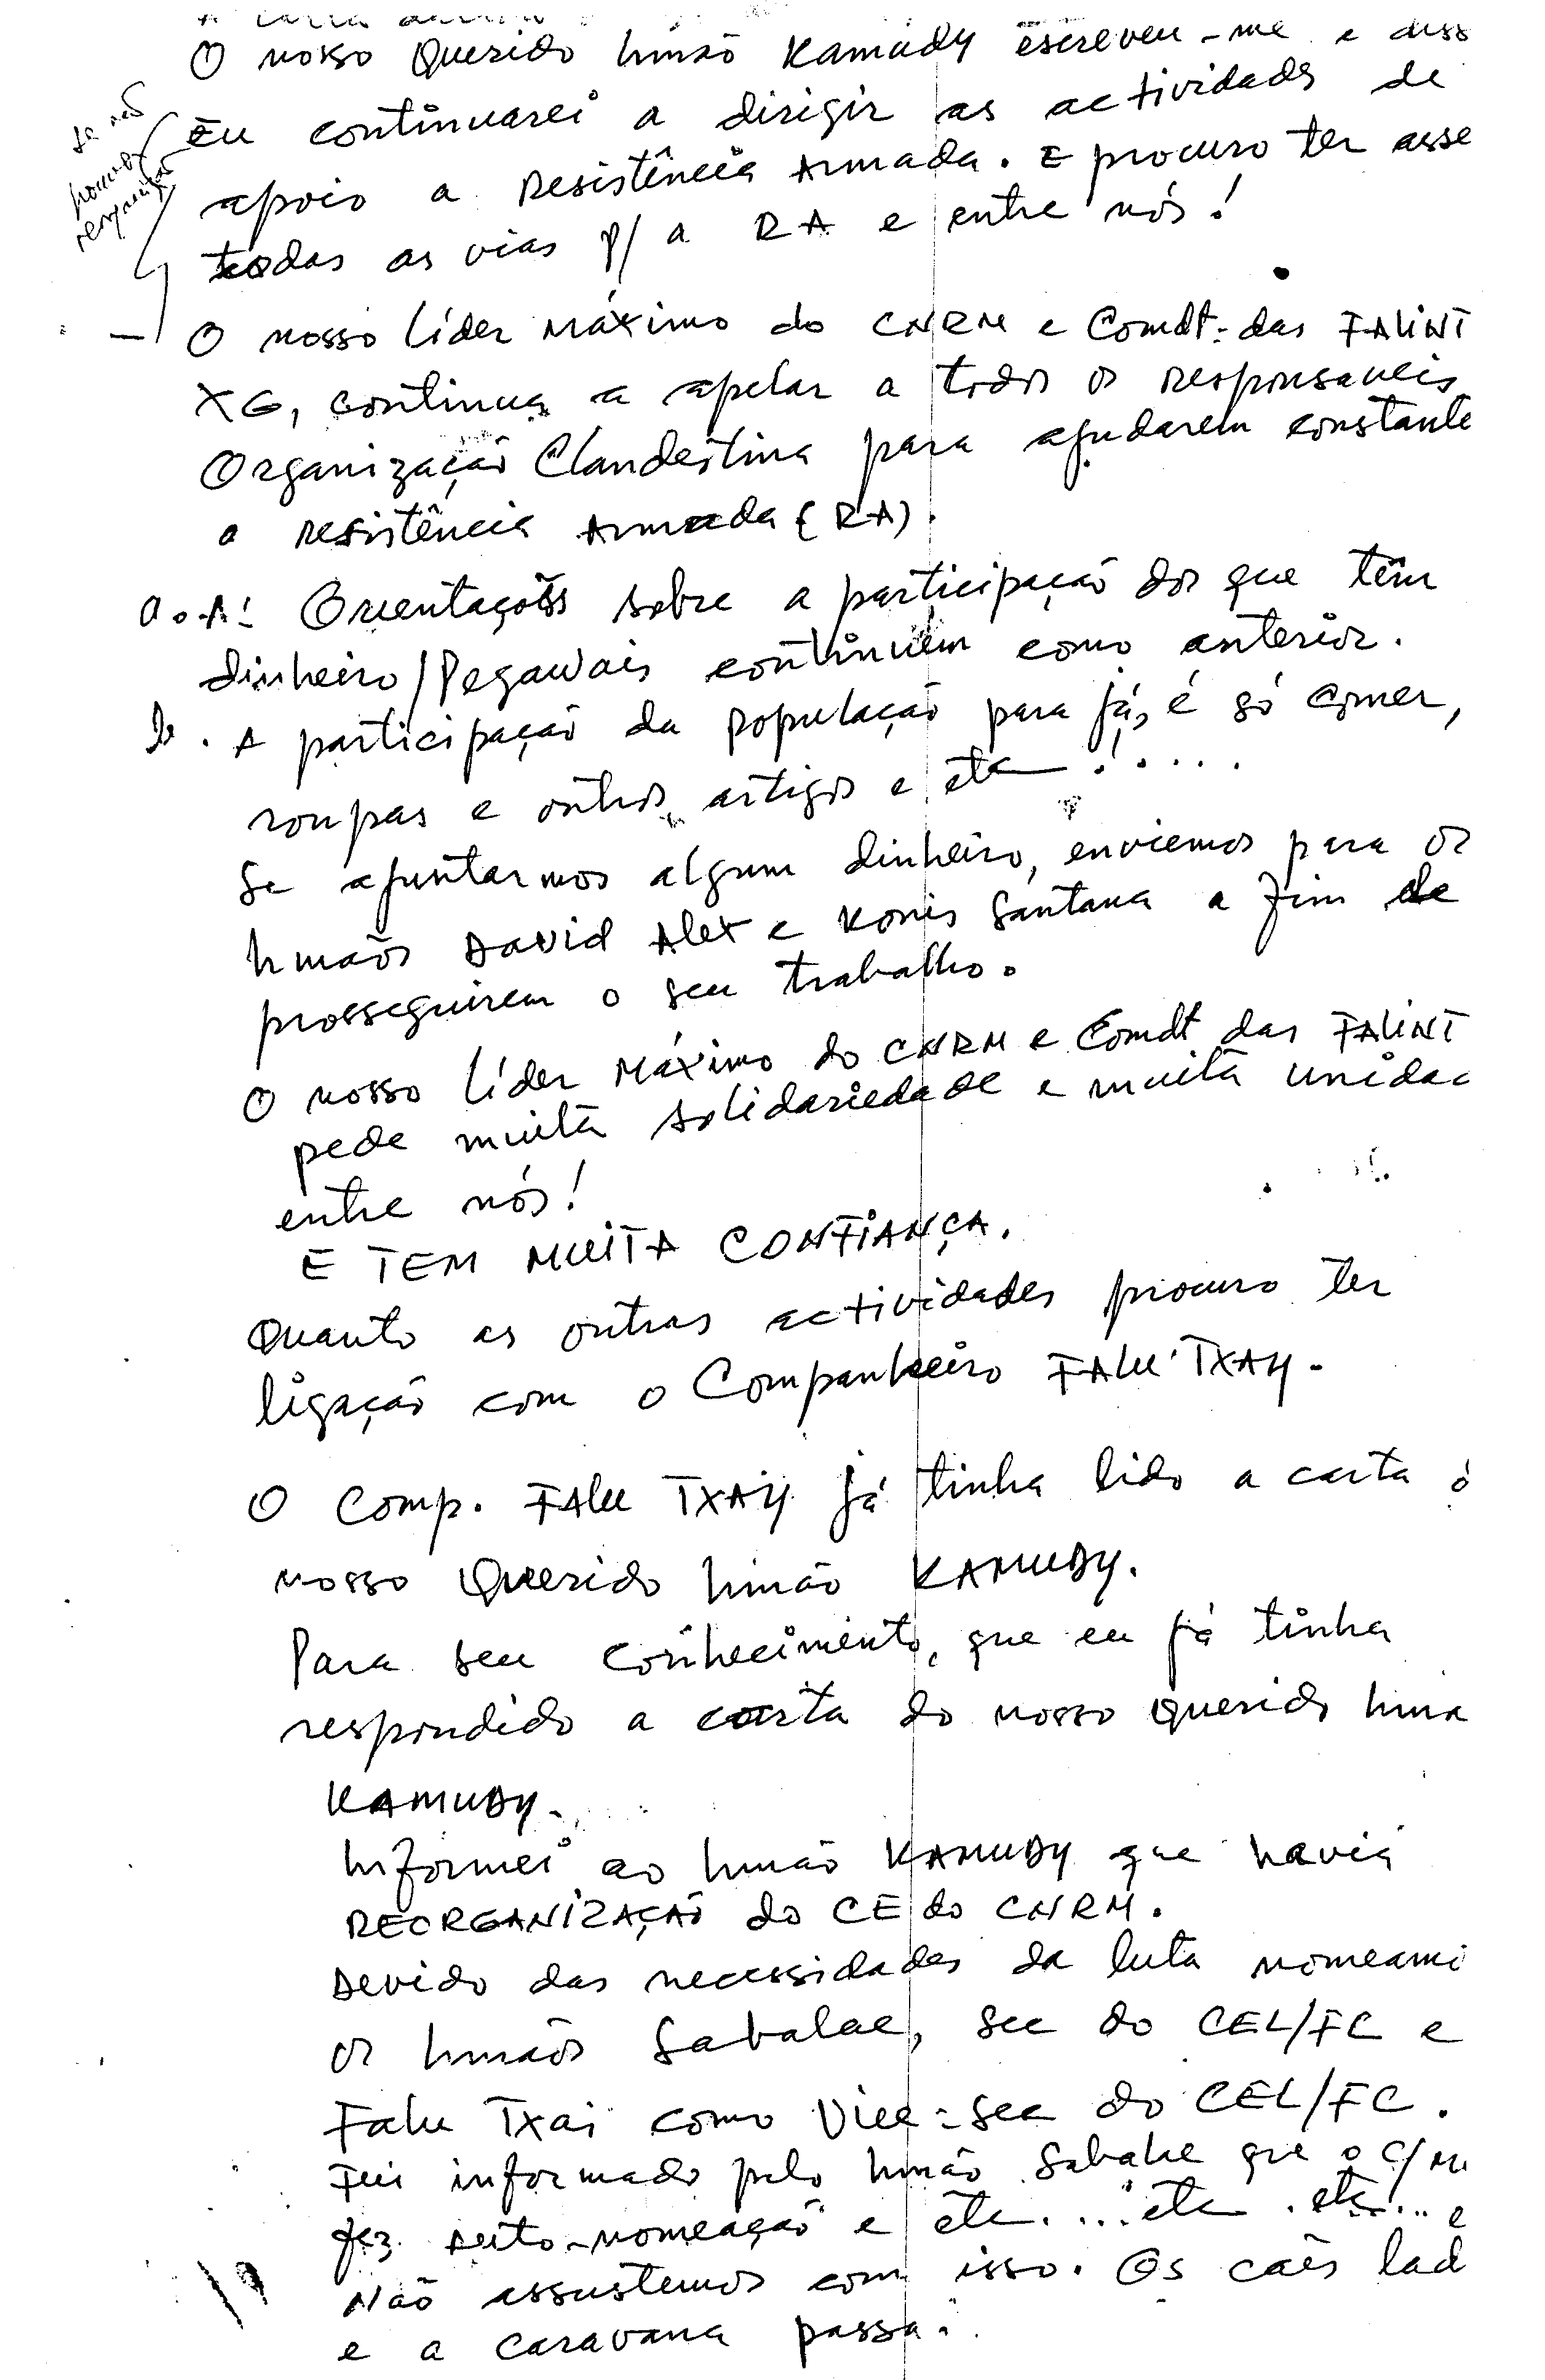 O nosso Querido Irmão Kamudy escreveu-me e diss
Eu continuarei a dirigir as actividades de
apoio a Resistência Armada. E procuro ter asse
todas as vias p/ a RA e entre nós!
se não
O nosso líder Máximo do CNRM e Comdt. das FALINT
XG, continua a apelar a todos os responsaveis
Organização Clandestina para ajudarem constante
a resistência Armada (RA).
a. A: Orientações sobre a participação dos que têm
dinheiro/Pegawais continuem como anterior.
b. A participação da população para já, é só comer,
roupas e outros artigos e etc !....
Se ajuntarmos algum dinheiro, enviemos para os
Irmãos David Alex e Konis Santana a fim de
prosseguirem o seu trabalho.
O nosso líder Máximo do CNRM e Comdt das FALINT
pede muita solidariedade e muita unidad
entre nós!
E TEM MUITA CONFIANÇA.
Quanto as outras actividades procuro ter
ligação com o Companheiro FALU TXAY.
O Comp. FALU TXAY já tinha lido a carta
nosso Querido Irmão KAMUDY.
Para seu conhecimento, que eu já tinha
respondido a carta do nosso Querido Irmã
KAMUDY.
Informei ao Irmão KAMUDY que havia
REORGANIZAÇÃO do CE do CNRM.
Devido das necessidades da luta nomeamo
os Irmãos Sabalae, Sec do CEL/FC e
Falu Txai como Vice-Sec do CEL/FC.
Fui informado pelo Irmão Sabalae que o
fez auto-nomeação e etc....etc .etc... e
Não assustemos com isso. Os cães lad
e a caravana passa.